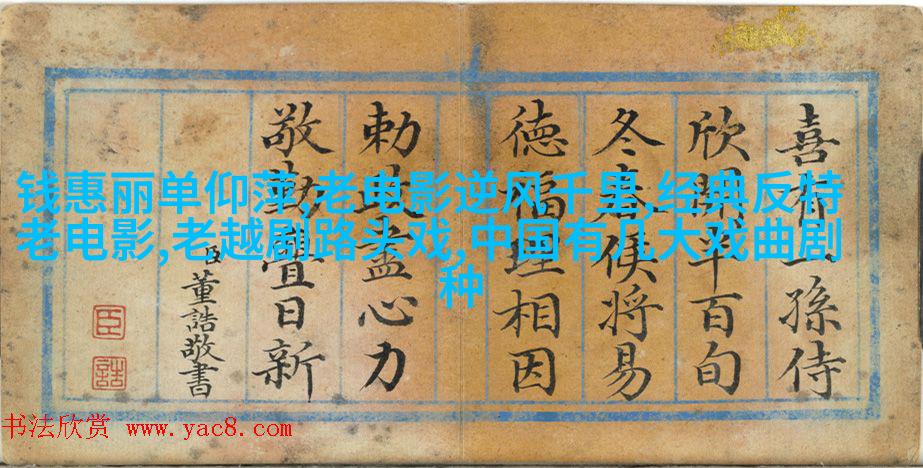 钱惠丽单仰萍,老电影逆风千里,经典反特
老电影,老越剧路头戏,中国有几大戏曲剧
种
喜有孫侍
欣開半百旬
冬候将易
德福理相因
勅盡心力
敬勤亶日新
臣董誥敬書
臣
誥
书法欣赏 www.yac8.com